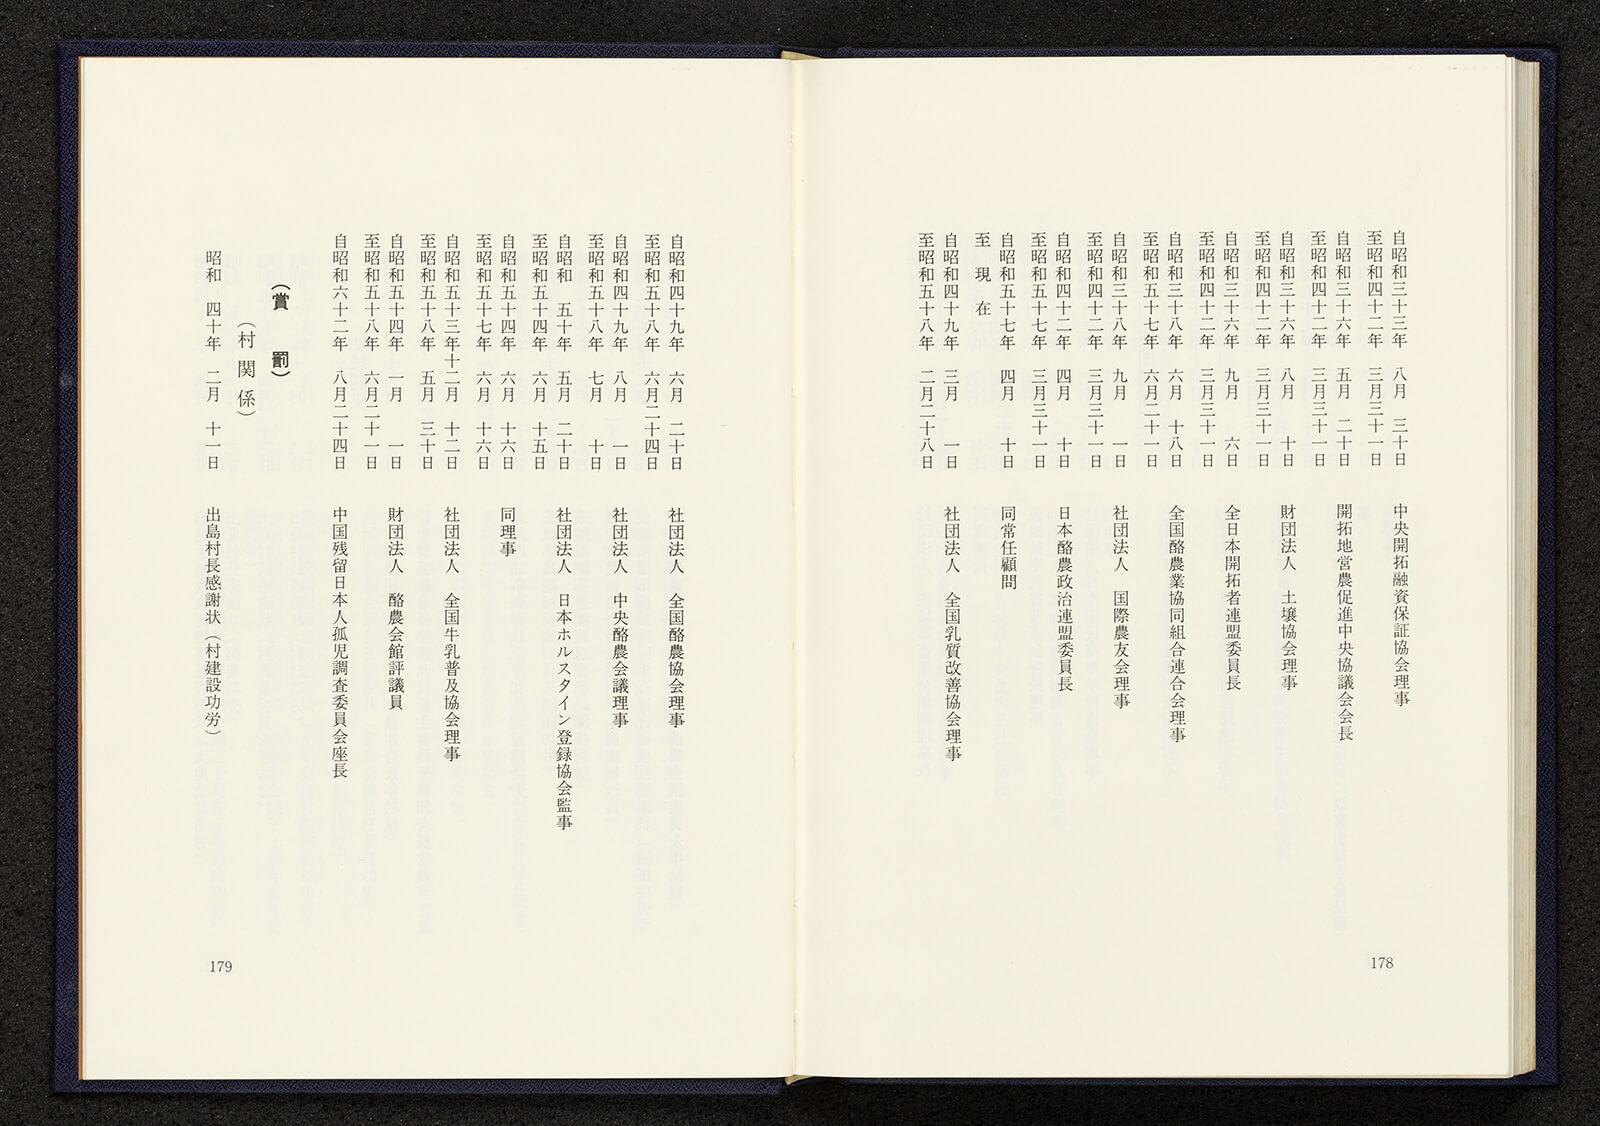 自昭和三十三年　八月　三十日　中央開拓融資保証協会理事
至昭和四十二年　三月三十一日
自昭和三十六年　五月　二十日　開拓地営農促進中央協議会会長
至昭和四十二年　三月三十一日
自昭和三十六年　八月　十日　財団法人　土壌協会理事
至昭和四十二年　三月三十一日
自昭和三十六年　九月　六日　全日本開拓者連盟委員長
至昭和四十二年　三月三十一日
自昭和三十八年　六月　十八日　全国酪農業協同組合連合会理事
至昭和五十七年　六月二十一日
自昭和三十八年　九月　一日　社団法人　国際農友会理事
至昭和四十二年　三月三十一日
自昭和四十二年　四月　十日　日本酪農政治連盟委員長
至昭和五十七年　三月三十一日
自昭和五十七年　四月　十日　同常任顧問
至　現　在
自昭和四十九年　三月　一日　社団法人　全国乳質改善協会理事
至昭和五十八年　二月二十八日
178
自昭和四十九年　六月　二十日　社団法人　全国酪農協会理事
至昭和五十八年　六月二十四日
自昭和四十九年　八月　一日　社団法人　中央酪農会議理事
至昭和五十八年　七月　十日
自昭和　五十年　五月　二十日　社団法人　日本ホルスタイン登録協会監事
至昭和五十四年　六月　十五日
自昭和五十四年　六月　十六日　同理事
至昭和五十七年　六月　十六日
自昭和五十三年十二月　十二日　社団法人　全国牛乳普及協会理事
至昭和五十八年　五月　三十日
自昭和五十四年　一月　一日　財団法人　酪農会館評議員
至昭和五十八年　六月二十一日
自昭和六十二年　八月二十四日　中国残留日本人孤児調査委員会座長
（賞　罰）
（村関係）
昭和　四十年　二月　十一日　出島村長感謝状（村建設功労）
179